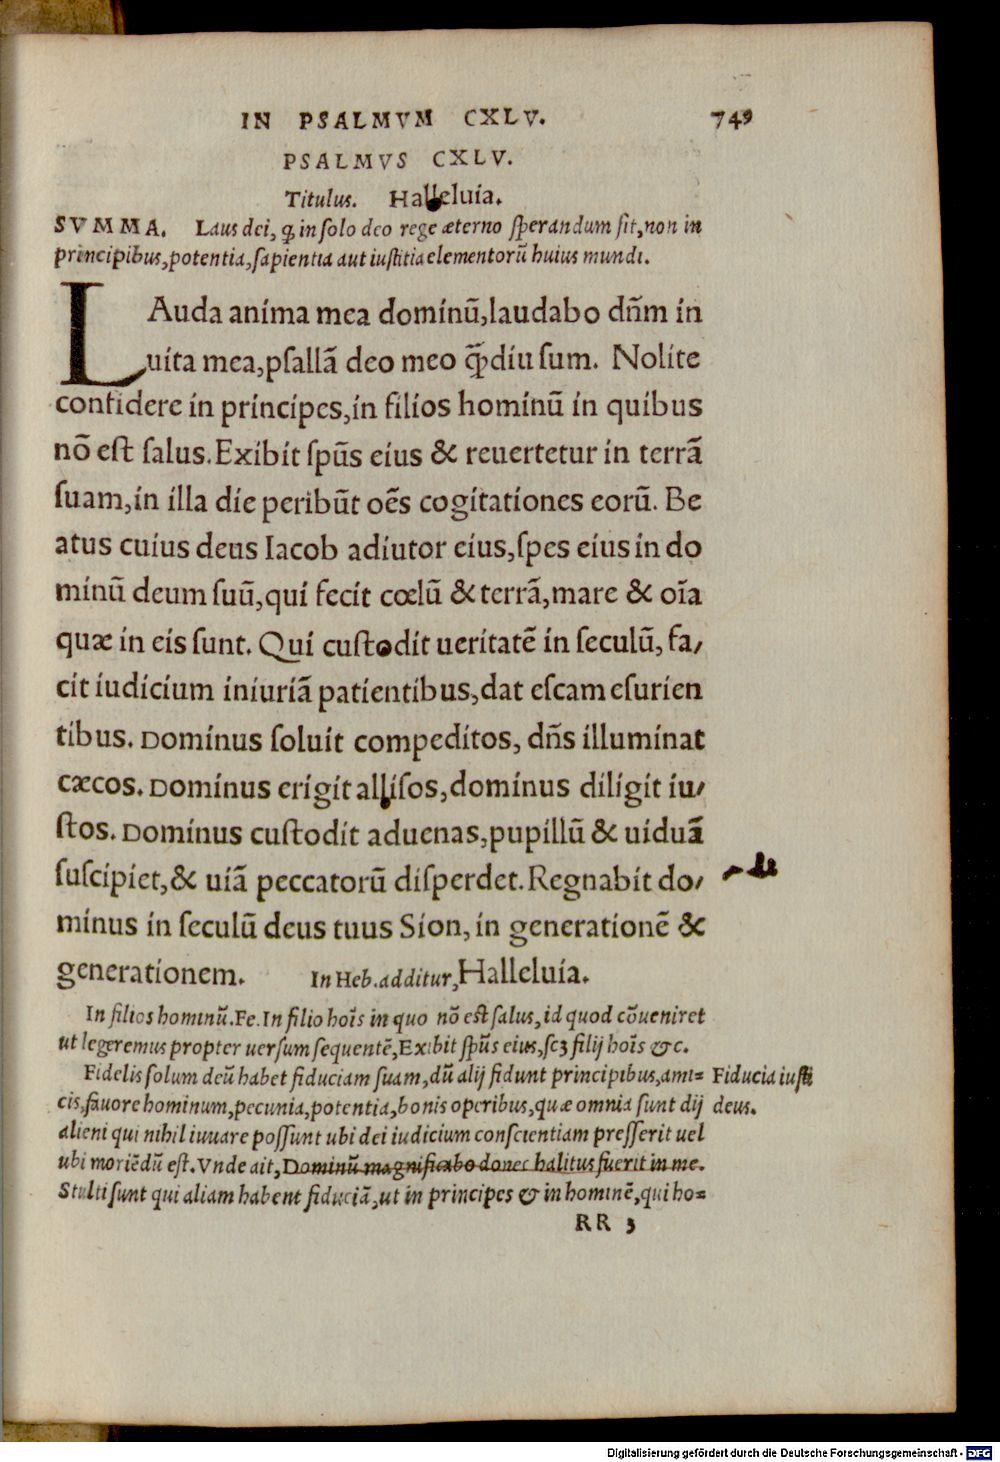 IN PSALMVM CXLV. 749
PSALMVS CXLV.
Titulus. Halleluia.
SVMMA. Laus dei, ꝙ in solo deo rege æterno sperandum sit, non in
principibus, potentia, sapientia aut iustitia elementorũ huius mundi.
LAuda anima mea dominũ, laudabo dñm in
uita mea, psallã deo meo q̃diu sum. Nolite
confidere in principes, in filios hominũ in quibus
nõ est salus. Exibit spũs eius & reuertetur in terrã
suam, in illa die peribũt oẽs cogitationes eorũ. Be
atus cuius deus Iacob adiutor eius, spes eius in do
minũ deum suũ, qui fecit cœlũ & terrã, mare & oĩa
quæ in eis sunt. Qui custodit ueritatẽ in seculũ, fa/
cit iudicium iniuriã patientibus, dat escam esurien
tibus. Dominus soluit compeditos, dñs illuminat
cæcos. Dominus erigit allisos, dominus diligit iu/
stos. Dominus custodit aduenas, pupillũ & uiduã
suscipiet, & uiã peccatorũ disperdet. Regnabit do/
minus in seculũ deus tuus Sion, in generationẽ &
generationem. In Heb. additur, Halleluia.
In filios hominũ. Fe. In filio hoĩs in quo nõ est salus, id quod cõueniret
ut legeremus propter uersum sequentẽ, Exibit spũs eius, scꝫ filij hoĩs &c.
Fidelis solum deũ habet fiduciam suam, dũ alij fidunt principibus, ami=
Fiducia iusti
cis, fauore hominum, pecunia, potentia, bonis operibus, quæ omnia sunt dij
deus.
alieni qui nihil iuuare possunt ubi dei iudicium conscientiam presserit uel
ubi moriẽdũ est. Vnde ait, Dominũ magnificabo donec halitus fuerit in me.
Stulti sunt qui aliam habent fiduciã, ut in principes & in hominẽ, qui ho=
RR 3
Digitalisierung gefördert durch die Deutsche Forschungsgemeinschaft - DFG